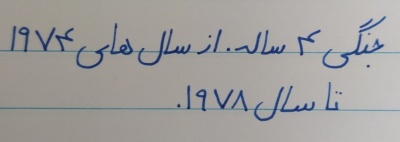 جنگی ۴ ساله. از سال های ۱۹۷۴
تا سال ۱۹۷۸.